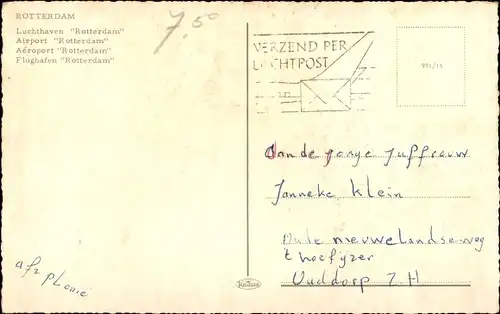 ROTTERDAM
Luchthaven "Rotterdam"
Airport "Rotterdam"
Aéroport "Rotterdam"
Flughafen "Rotterdam"
7.50
VERZEND PER
LUCHTPOST
991/15
Aan de jonge juffrouw
Janneke Klein
Oude nieuwelandseweg
't hoefijzer
Ouddorp Z.H
afz